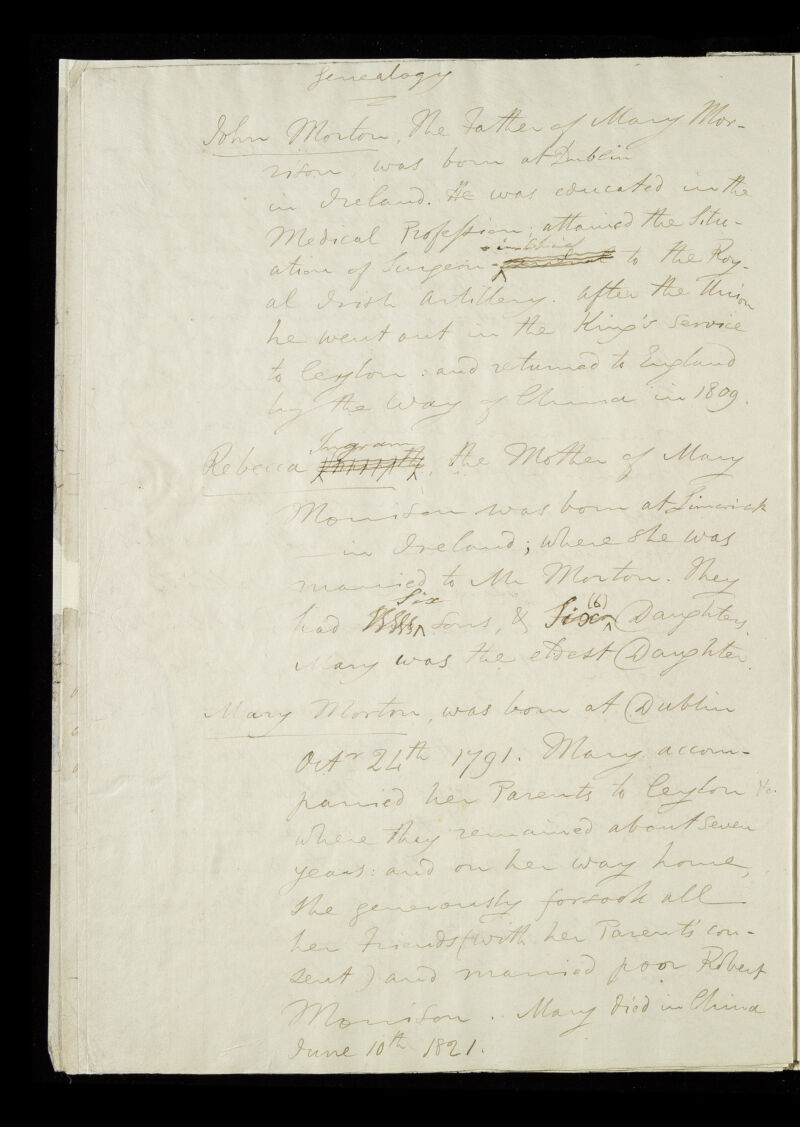 Genealogy
John Morton, the Father of Mary Mor-
rison was born at Dublin
in Ireland. He was educated in the
Medical Profession; attained the Situ-
in Chief
ation of Surgeon- general to the Roy-
al Irish Artillery. After the Union
he went out in the King's Service
to Ceylon: and returned to England
by the way of China in 1809.
Ingram
Rebecca, the Mother of Mary
Morrison was born at Limerick
in Ireland; where she was
married to Mr Morton. They
Six (6)
had sons, & Six Daughters,
Mary was the eldest Daughter.
Mary Morton, was born at Dublin
Octr 24th 1791. Mary accom-
panied her Parents to Ceylon &c.
where they remained about seven
years: and on her way home,
she generously forsook all
her Friends (with her Parents' con-
sent) and married poor Robert
Morrison. Mary died in China
June 10th 1821.